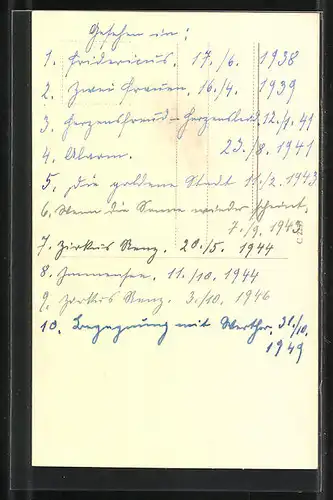 Gesehen in:
1. Fridericus. 17./6. 1938
2. Zwei Frauen. 16./4. 1939
3. Herzensfreud - Herzensleid. 12./1. 41
4. Alarm. 23./8. 1941
5. Die goldene Stadt 11./2. 1943
6. Wenn die Sonne wieder scheint.
7./9. 1943
7. Zirkus Renz. 20./5. 1944
8. Immensee. 11./10. 1944
9. Zirkus Renz. 3./10. 1946
10. Begegnung mit Werther. 31./10.
1949